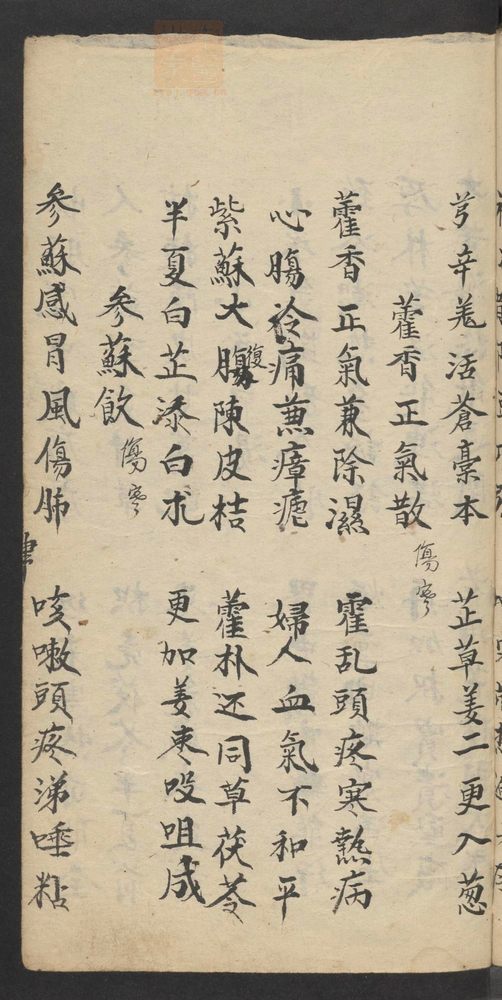 芎辛羗活蒼藁本　芷草姜二更入葱
藿香正氣散　傷寒
藿香正氣兼除濕　霍乱頭疼寒熱病
心腸冷痛兼瘴瘧　婦人血氣不和平
紫蘇大腸腹陳皮桔　藿朴还同草茯苓
半夏白芷添白朮　更加姜枣㕮咀成
參蘇飲　傷寒
參蘇感冒風傷肺　咳嗽頭疼涕唾粘